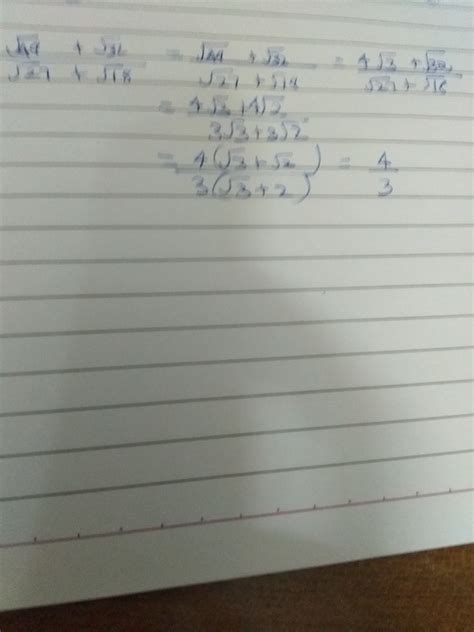 √48 + √32 / √27 + √18 = √48 + √32 / √27 + √18 = 4√3 + √32 / √27 + √18
= 4√3 + 4√2 / 3√3 + 3√2
= 4(√3 + √2) / 3(√3 + 2) = 4/3